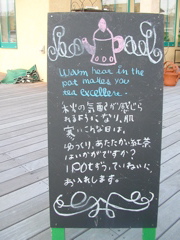 Warm hear in the
pot makes you
tea excellere!
秋の気配が感じら
れるようになり、肌
寒いこんな日は、
ゆっくり、あたたかい紅茶
はいかがですか?
1Potずつ、ていねいに
お入れします。